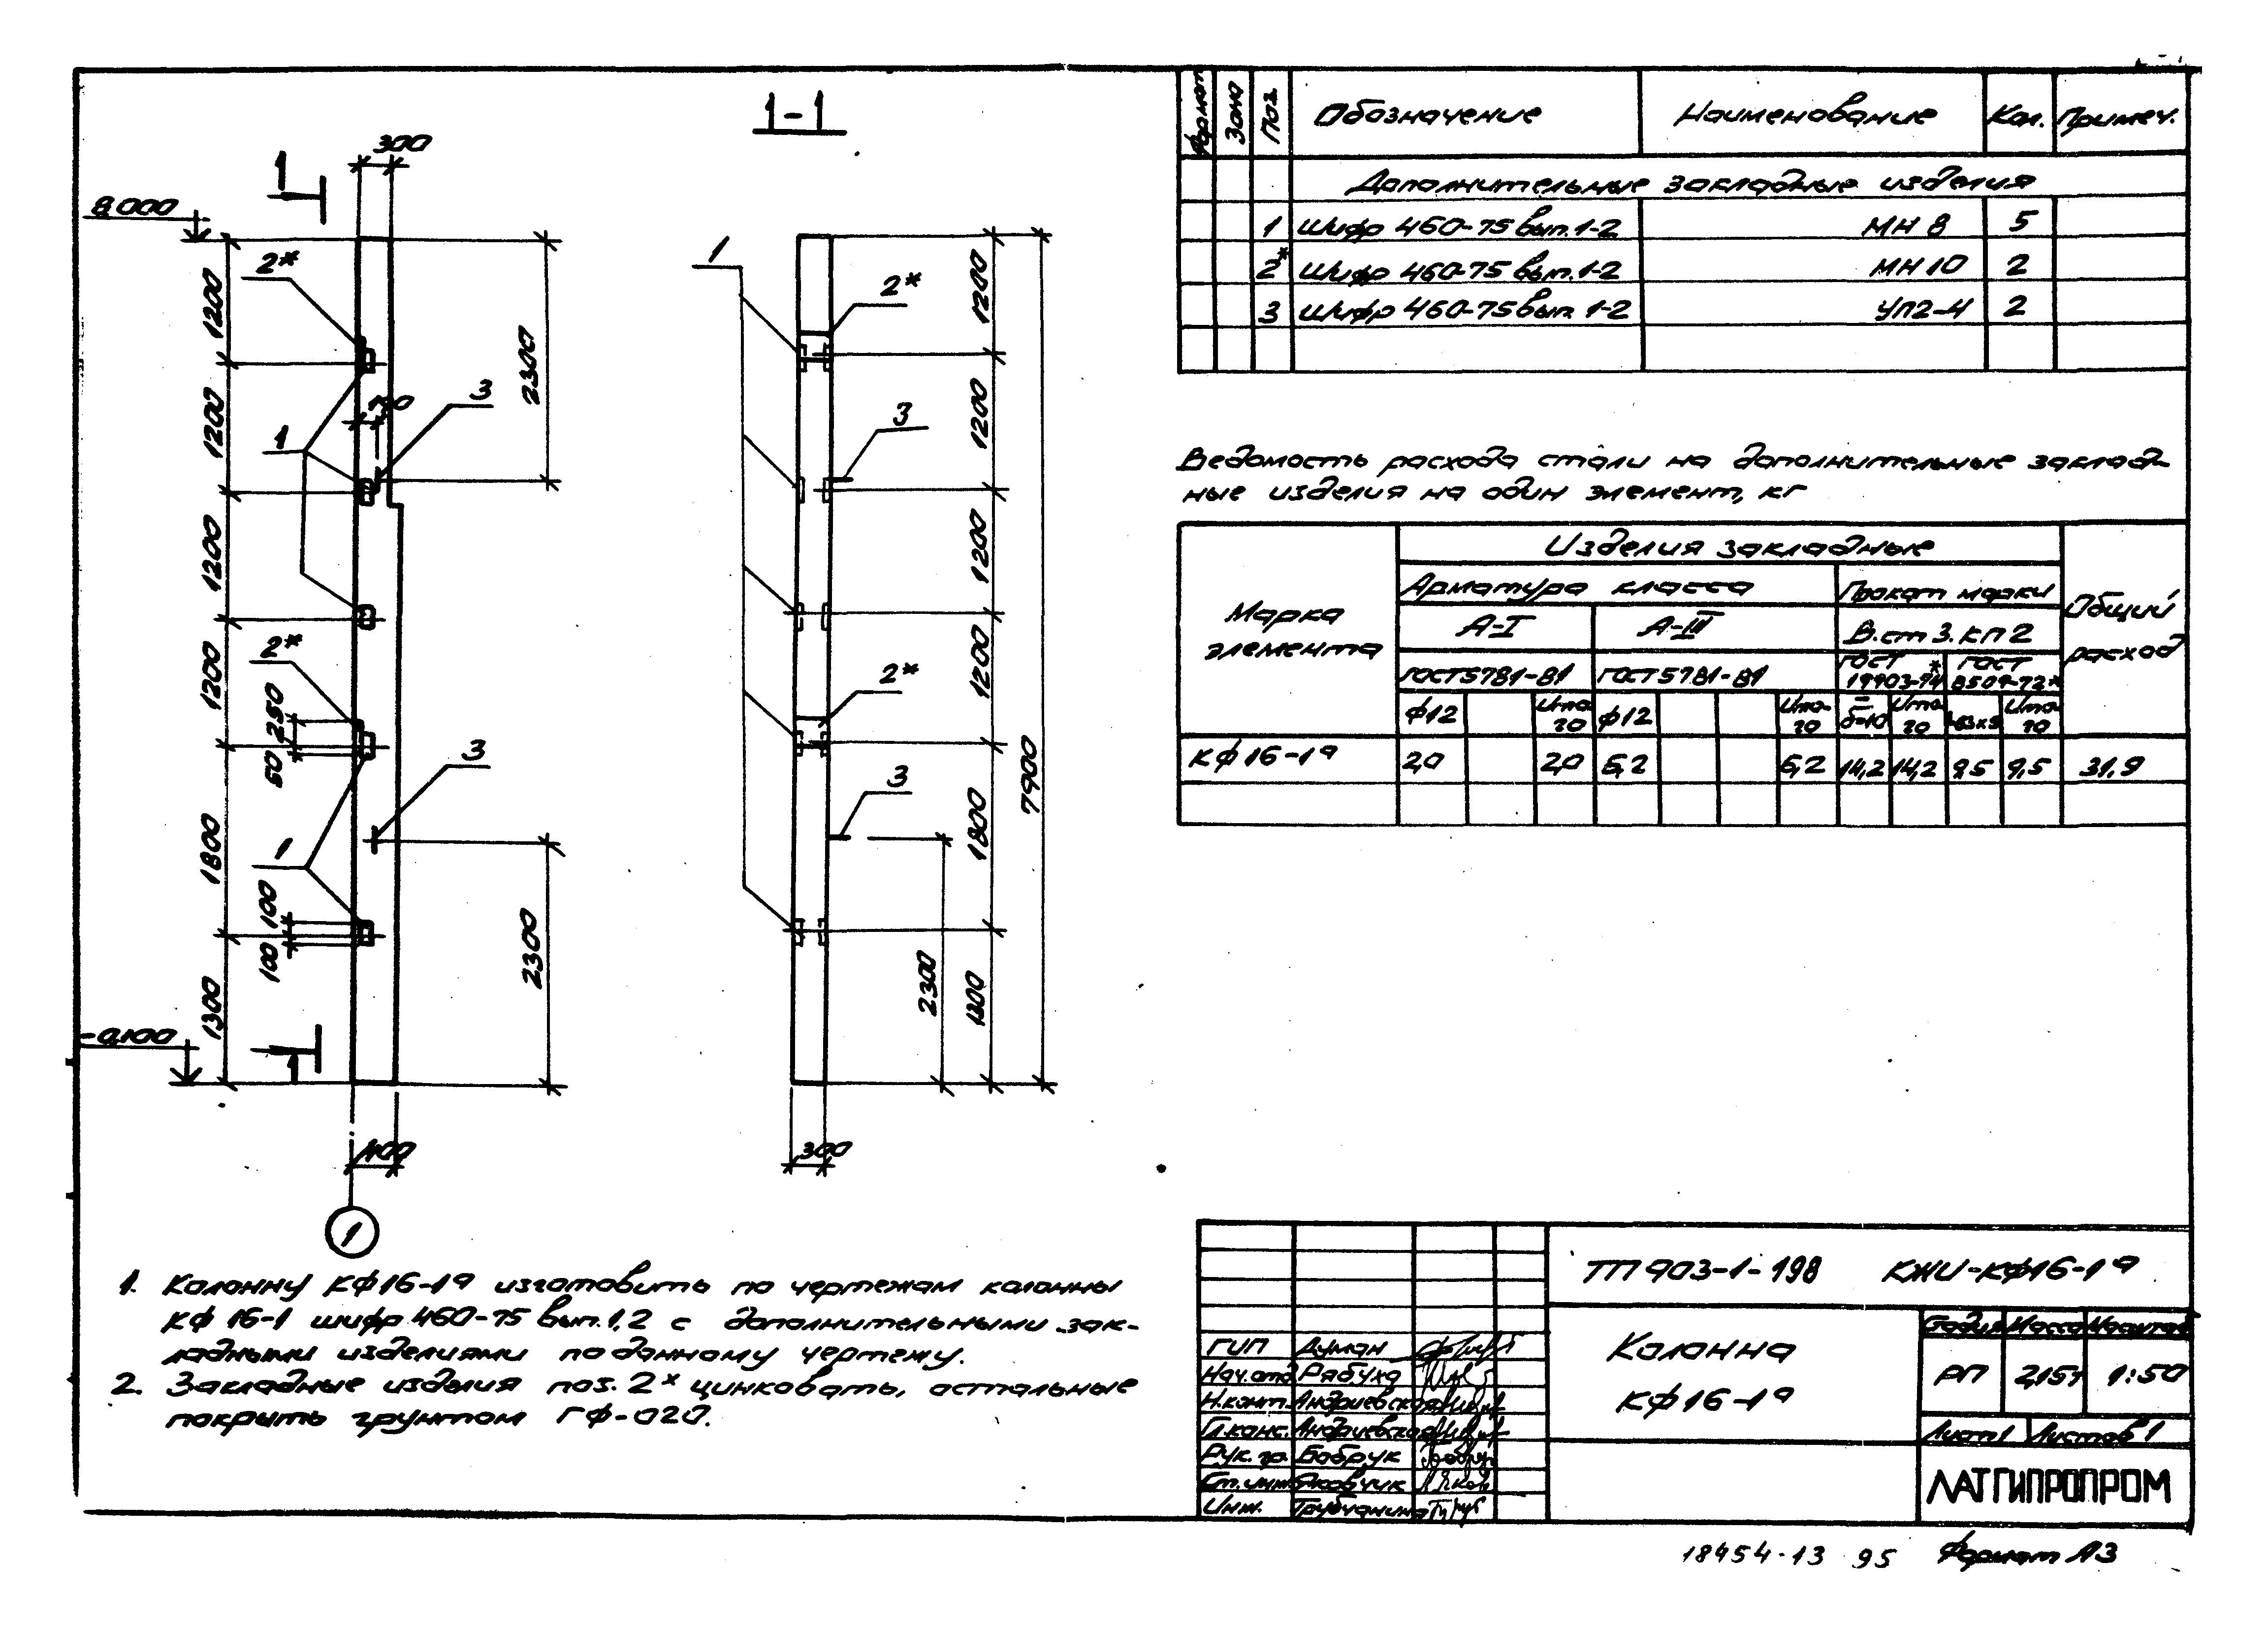 1-1
300
1
8.000
2*
1200
1200
1200
1200
1800
1300
1
3
2300
2*
250
50
3
1
100
100
2300
-0.100
1
400
1
1
2*
3
2*
3
1200
1200
1200
1200
1800
1300
2300
7900
300
Формат Зона Поз. Обозначение Наименование Кол. Примеч.
Дополнительные закладные изделия
1 Шифр 460-75 вып. 1-2 МН 8 5
2* Шифр 460-75 вып. 1-2 МН 10 2
3 Шифр 460-75 вып. 1-2 УП2-4 2
Ведомость расхода стали на дополнительные заклад-
ные изделия на один элемент, кг
Марка элемента
Изделия закладные
Общий расход
Арматура класса Прокат марки
А-I А-III В.ст 3. кп 2
ГОСТ 5781-81 ГОСТ 5781-81 ГОСТ 19903-74* ГОСТ 8509-72*
Ф12 Итого Ф12 Итого δ=10 Итого Итого
КФ 16-1а 2,0 2,0 6,2 6,2 14,2 14,2 9,5 9,5 31,9
1. Колонну КФ16-1а изготовить по чертежам колонны
КФ 16-1 шифр 460-75 вып. 1,2 с дополнительными зак-
ладными изделиями по данному чертежу.
2. Закладные изделия поз. 2* цинковать, остальные
покрыть грунтом ГФ-020.
ТП 903-1-198 КЖИ-КФ16-1а
Колонна
КФ 16-1а
Стадия Масса Масштаб
РП 2,15т 1:50
Лист 1 Листов 1
ГИП Думан
Нач. отд Рябуха
Н.конт. Андриевская
Гл.конс. Андриевская
Рук. гр. Бобрук
Ст. инж Яковчик
Инж. Трубчанина
ЛАТГИПРОПРОМ
18454-13 95 Формат А3